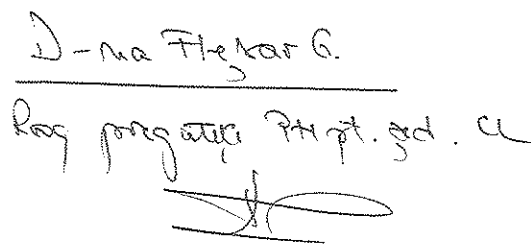 D-na Flezar G.
Rog pregătiți PH pt. șed. CL